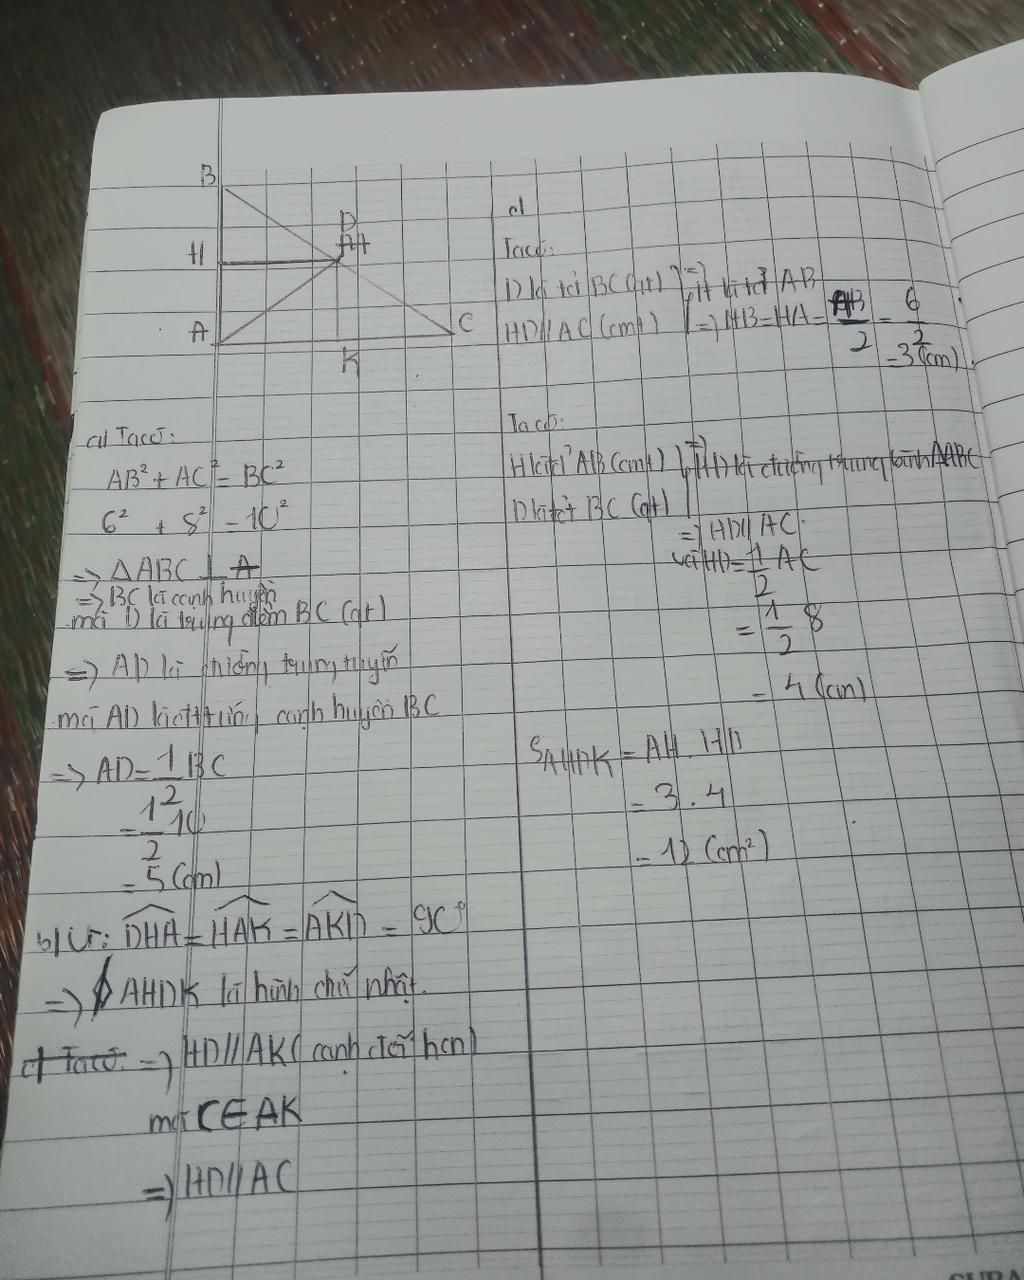 B
D
H
A
C
K
a) Ta có:
AB² + AC² = BC²
6² + 8² = 10²
=> ΔABC ⊥ A
=> BC là cạnh huyền
mà D là trung điểm BC (gt)
=> AD là đường trung tuyến
mà AD là đttứng cạnh huyền BC
=> AD = 1/2 BC
= 1/2 10
= 5 (cm)
b) Vì: DHA = HAK = AKD = 90°
=> AHDK là hình chữ nhật.
c) Ta có: => HD // AK (cạnh đối hcn)
mà C ∈ AK
=> HD // AC
Ta có:
D là tđ BC (gt) } => H là tđ AB
HD // AC (cmt) => HB = HA = AB/2 = 6/2
= 3 (cm)
Ta có:
H là tđ AB (cmt) } => HD là đường trung bình ΔABC
D là tđ BC (gt)
=> HD // AC
và HD = 1/2 AC
= 1/2 8
= 4 (cm)
S AHDK = AH . HD
= 3 . 4
= 12 (cm²)